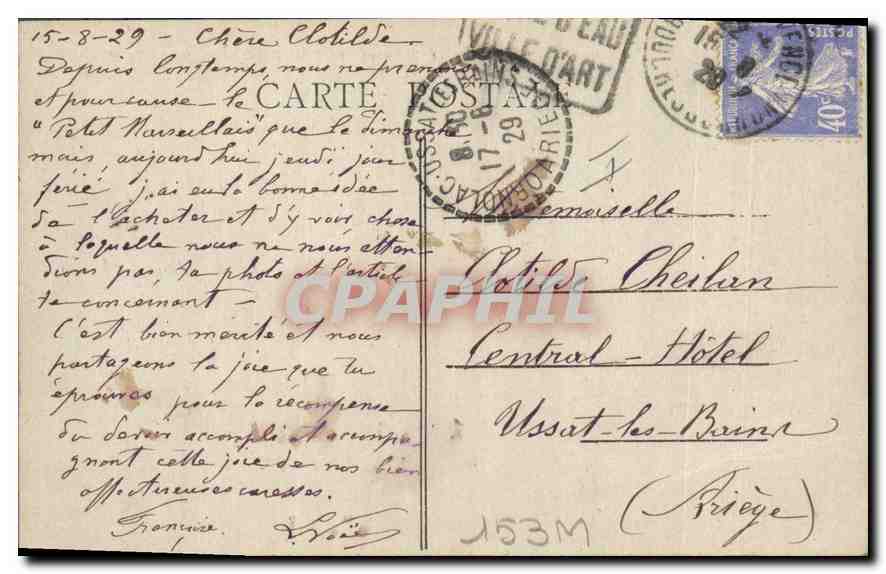 15-8-29 - Chère Clotilde
Depuis longtemps, nous ne prenons
et pour cause - le
"Petit Marseillais" que le dimanche
mais, aujourd'hui jeudi jour
férié, j'ai eu la bonne idée
de l'acheter et d'y voir chose
à laquelle nous ne nous atten-
dions pas, ta photo et l'article
te concernant -
C'est bien mérité et nous
partageons la joie que tu
éprouves pour la récompense
du devoir accompli et accompa-
gnont cette joie de nos bien
affectueuses caresses.
Françoise. L. Noë
CARTE POSTALE
USSAT LES BAINS
ORNOLAC
ARIEGE
8.30
17-8
29
D'EAU
VILLE D'ART
15
29
POSTES
40c
I
emoiselle
Clotilde Cheilan
Central-Hôtel
Ussat-les-Bains
(Ariège)
153M
CPAPHIL